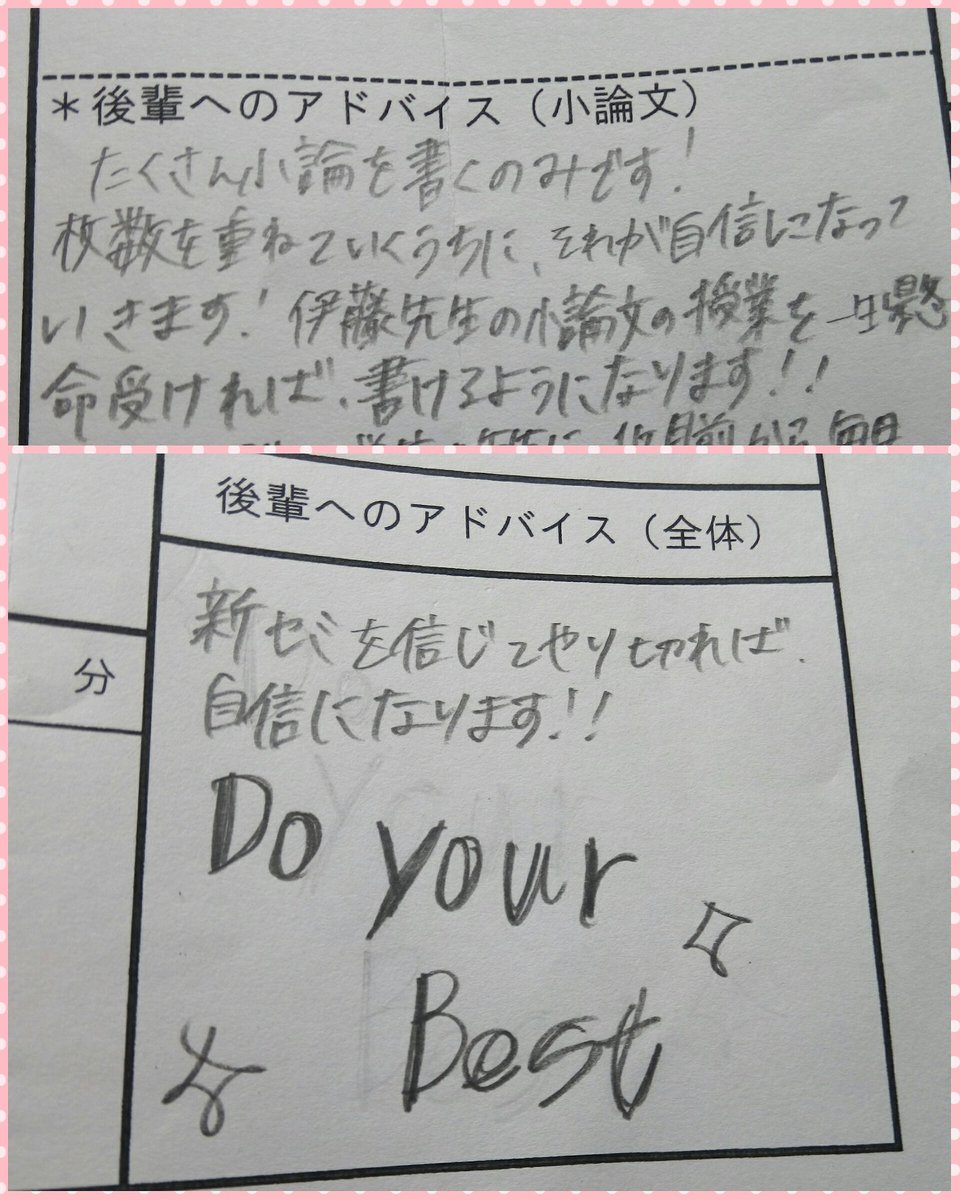 ＊後輩へのアドバイス（小論文）
たくさん小論を書くのみです！
枚数を重ねていくうちに、それが自信になって
いきます！伊藤先生の小論文の授業を一生懸
命受ければ、書けるようになります！！
後輩へのアドバイス（全体）
分
新ゼミを信じてやり切れば、
自信になります！！
Do
your
Best